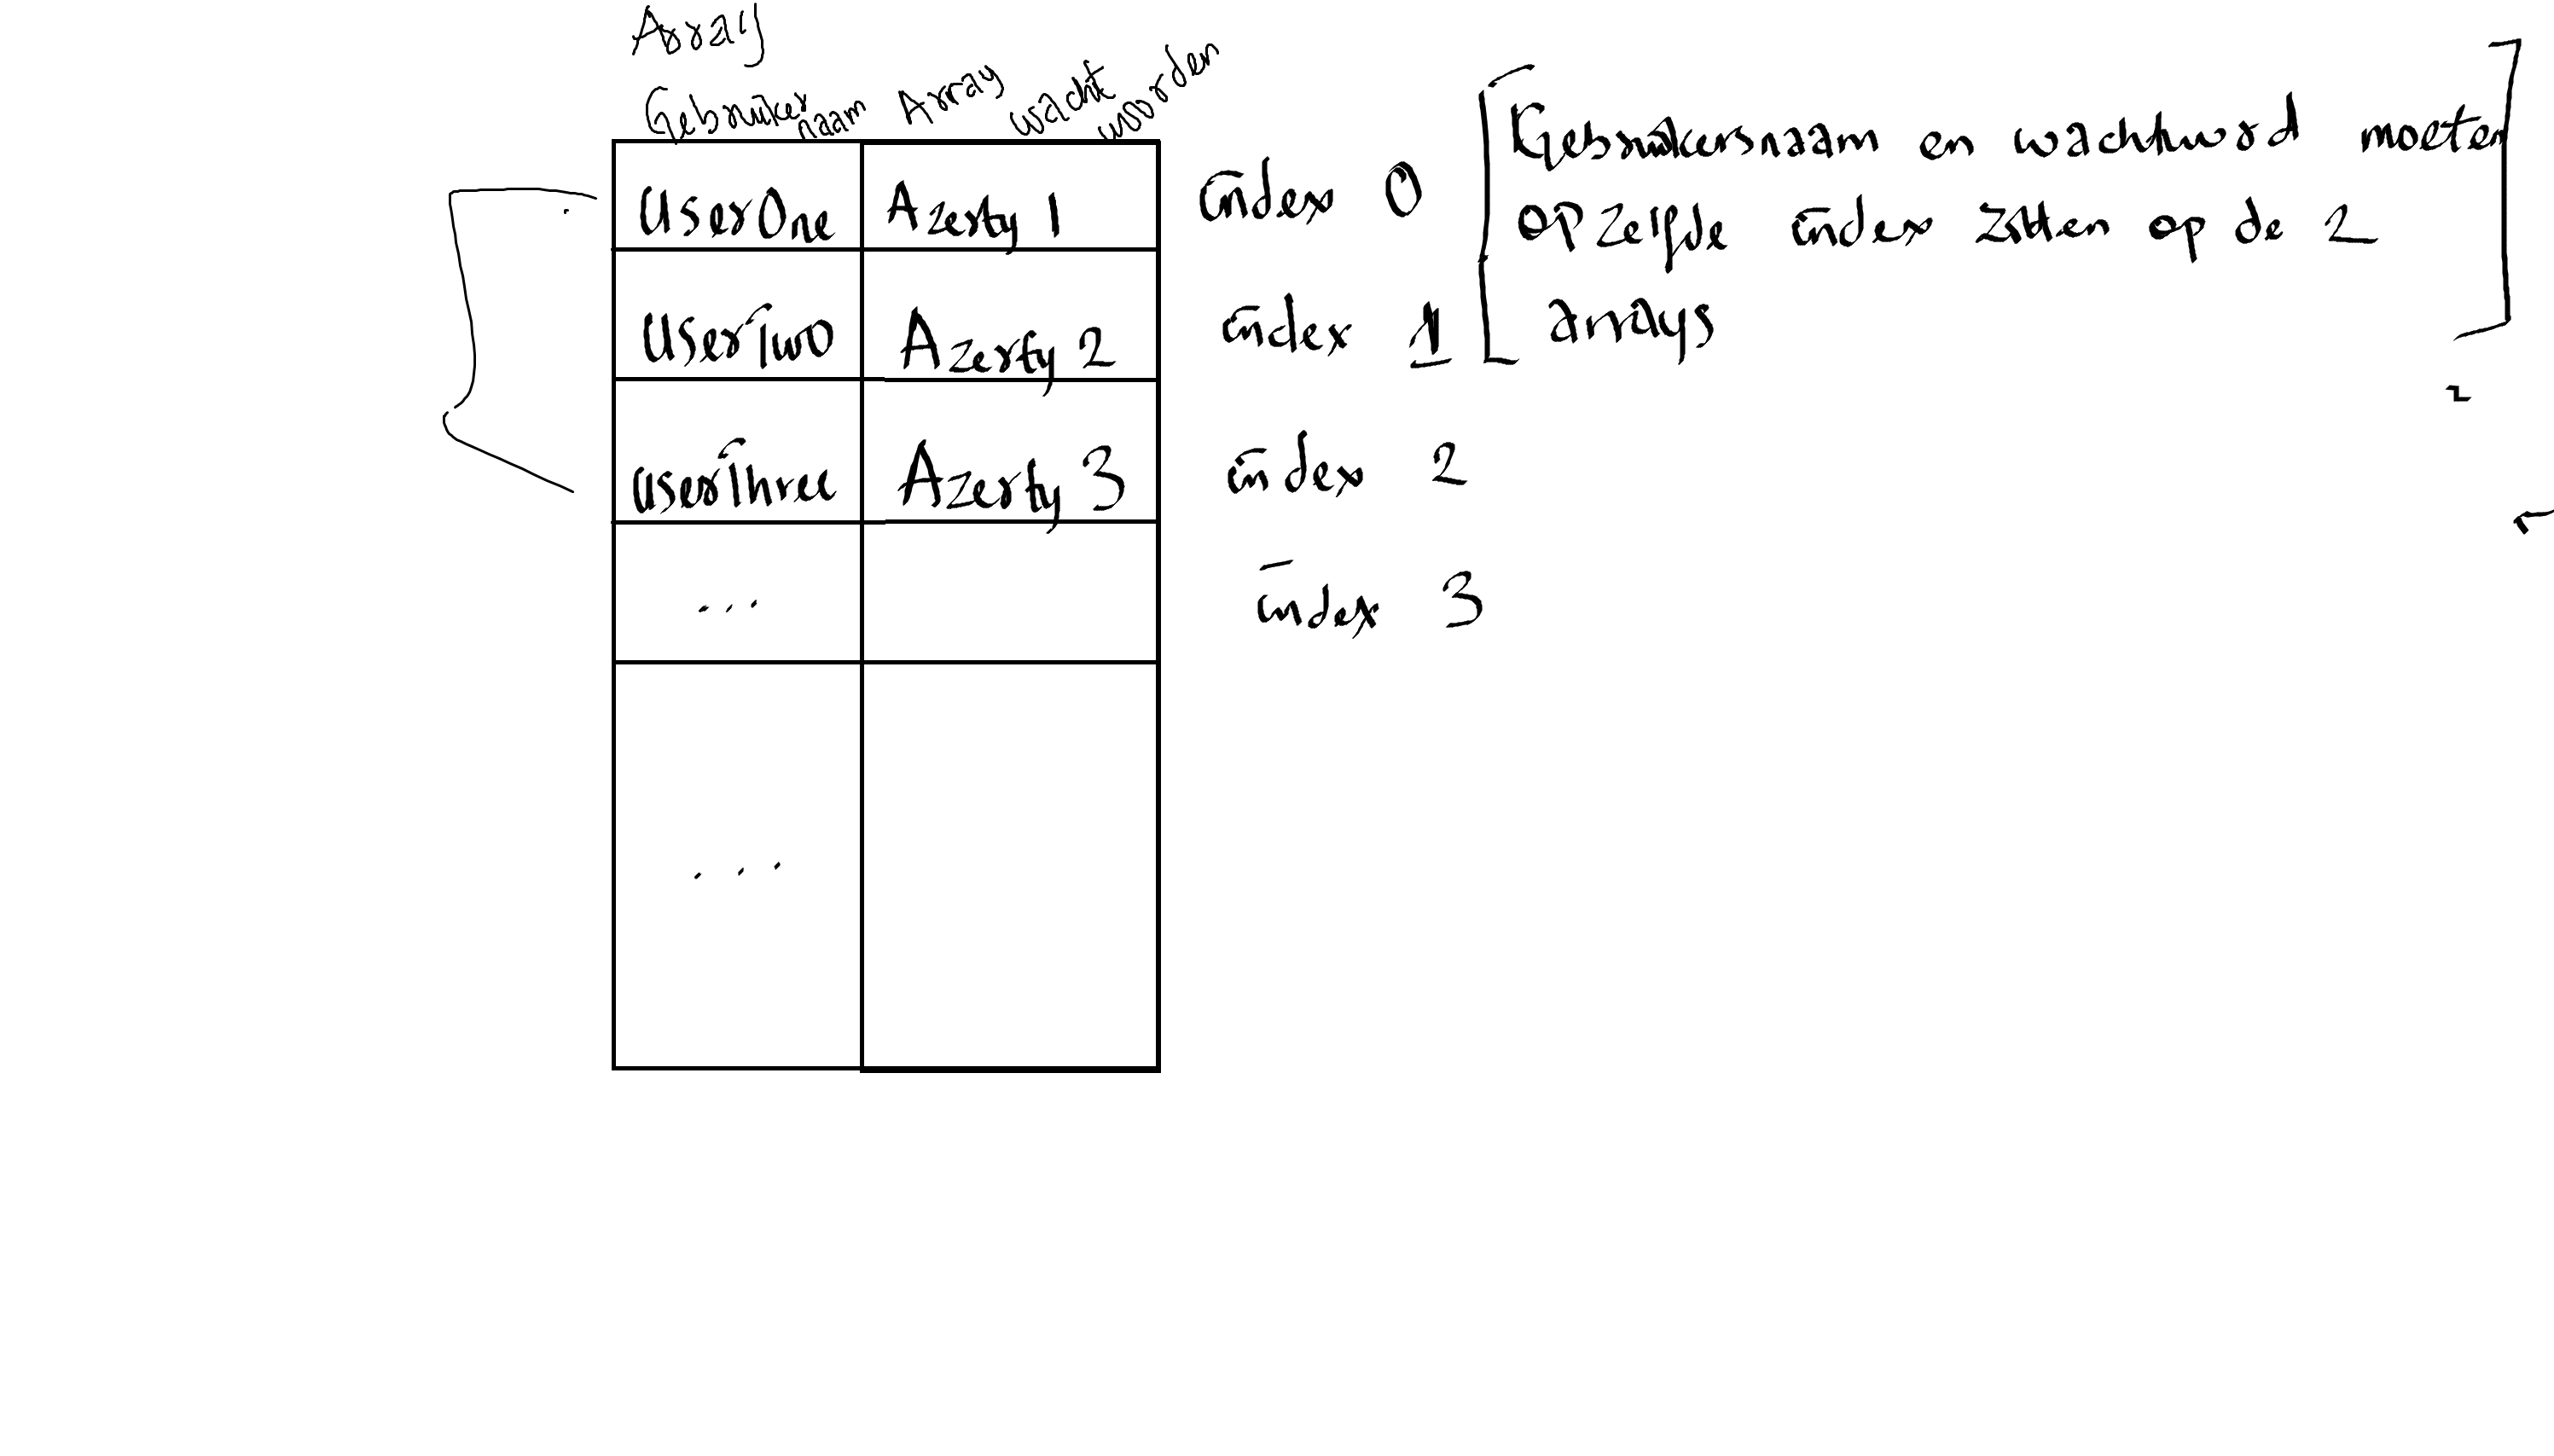 Array
Gebruiker
naam
Array
wacht
woorden
UserOne Azerty 1 index 0
UserTwo Azerty 2 index 1
userThree Azerty 3 index 2
... index 3
...
Gebruikersnaam en wachtword moeten
op zelfde index zitten op de 2
arrays